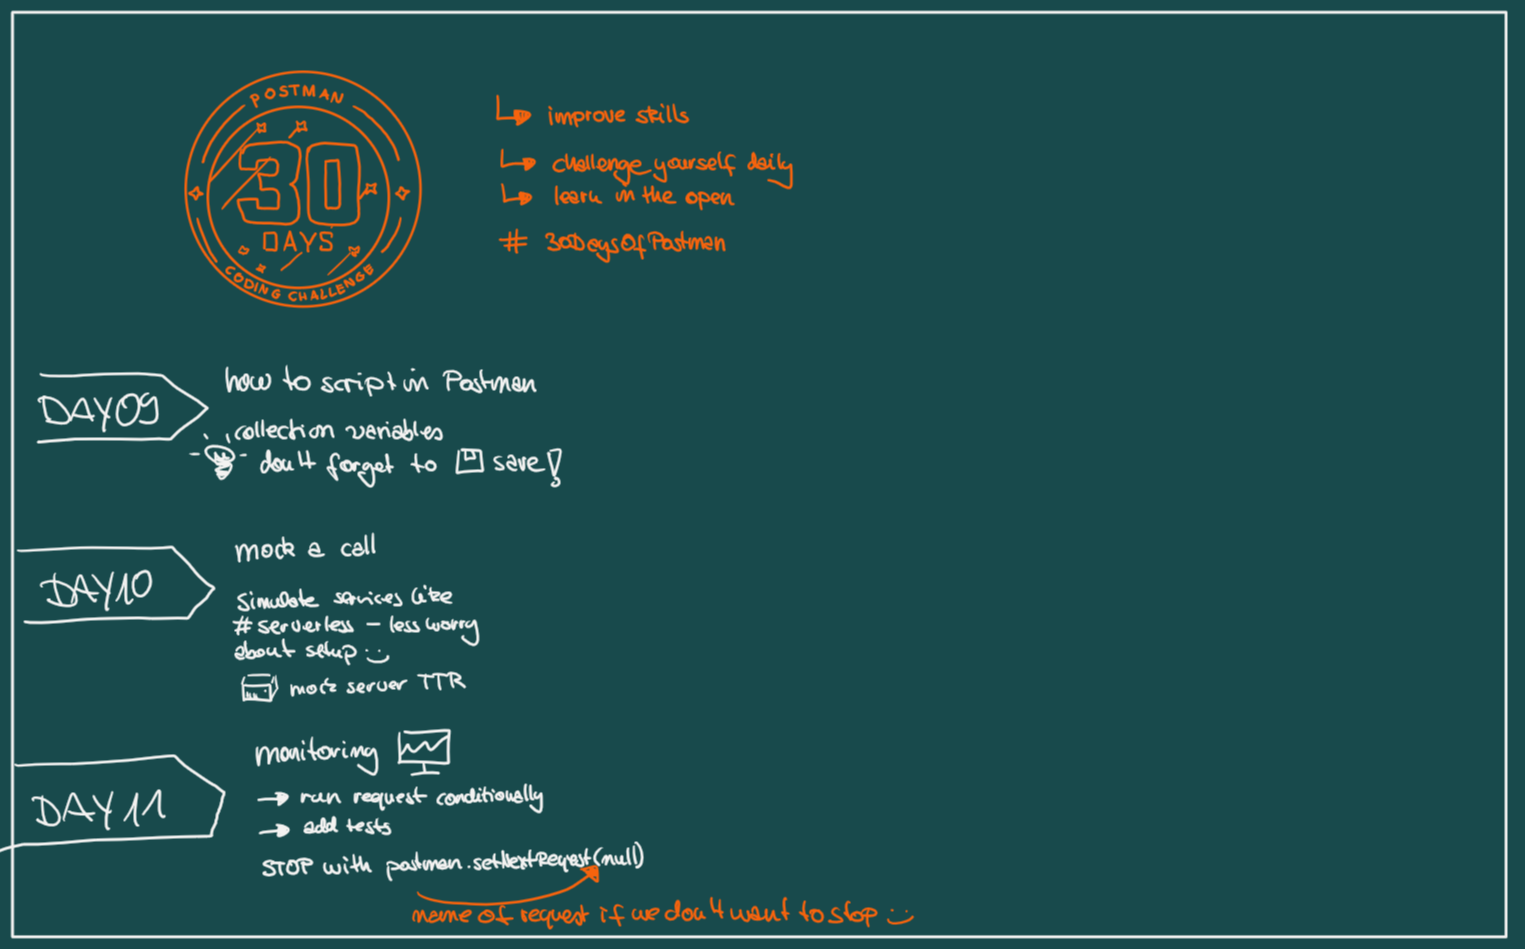 POSTMAN
30
DAYS
CODING CHALLENGE
improve skills
challenge yourself daily
learn in the open
# 30DaysOfPostman
DAY09
how to script in Postman
collection variables
don't forget to save!
DAY10
mock a call
Simulate services like
#serverless – less worry
about setup :)
mock server TTR
DAY11
monitoring
→ run request conditionally
→ add tests
STOP with postman.setNextRequest(null)
name of request if we don't want to stop :)